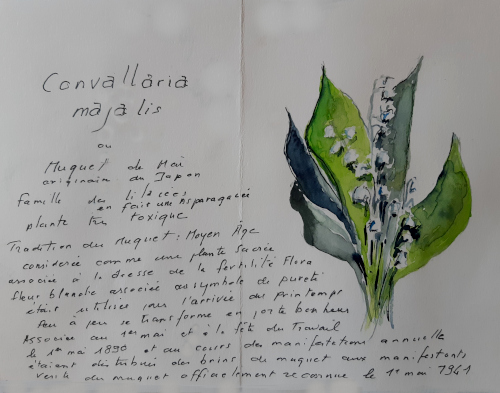 Convallaria
majalis
ou
Muguet de Mai
originaire du Japon
famille des liliacées
en fait une asparagacée
plante très toxique
Tradition du Muguet : Moyen Age
considérée comme une plante sacrée
associée à la déesse de la fertilité Flora
fleur blanche associée au symbole de pureté
était utilisée pour l'arrivée du printemps
peu à peu se transforme en porte bonheur
Associée au 1er mai et à la fête du Travail
le 1er mai 1890 et au cours des manifestations annuelle
étaient distribués des brins de muguet aux manifestants
vente du muguet officialement reconnue le 1er mai 1941